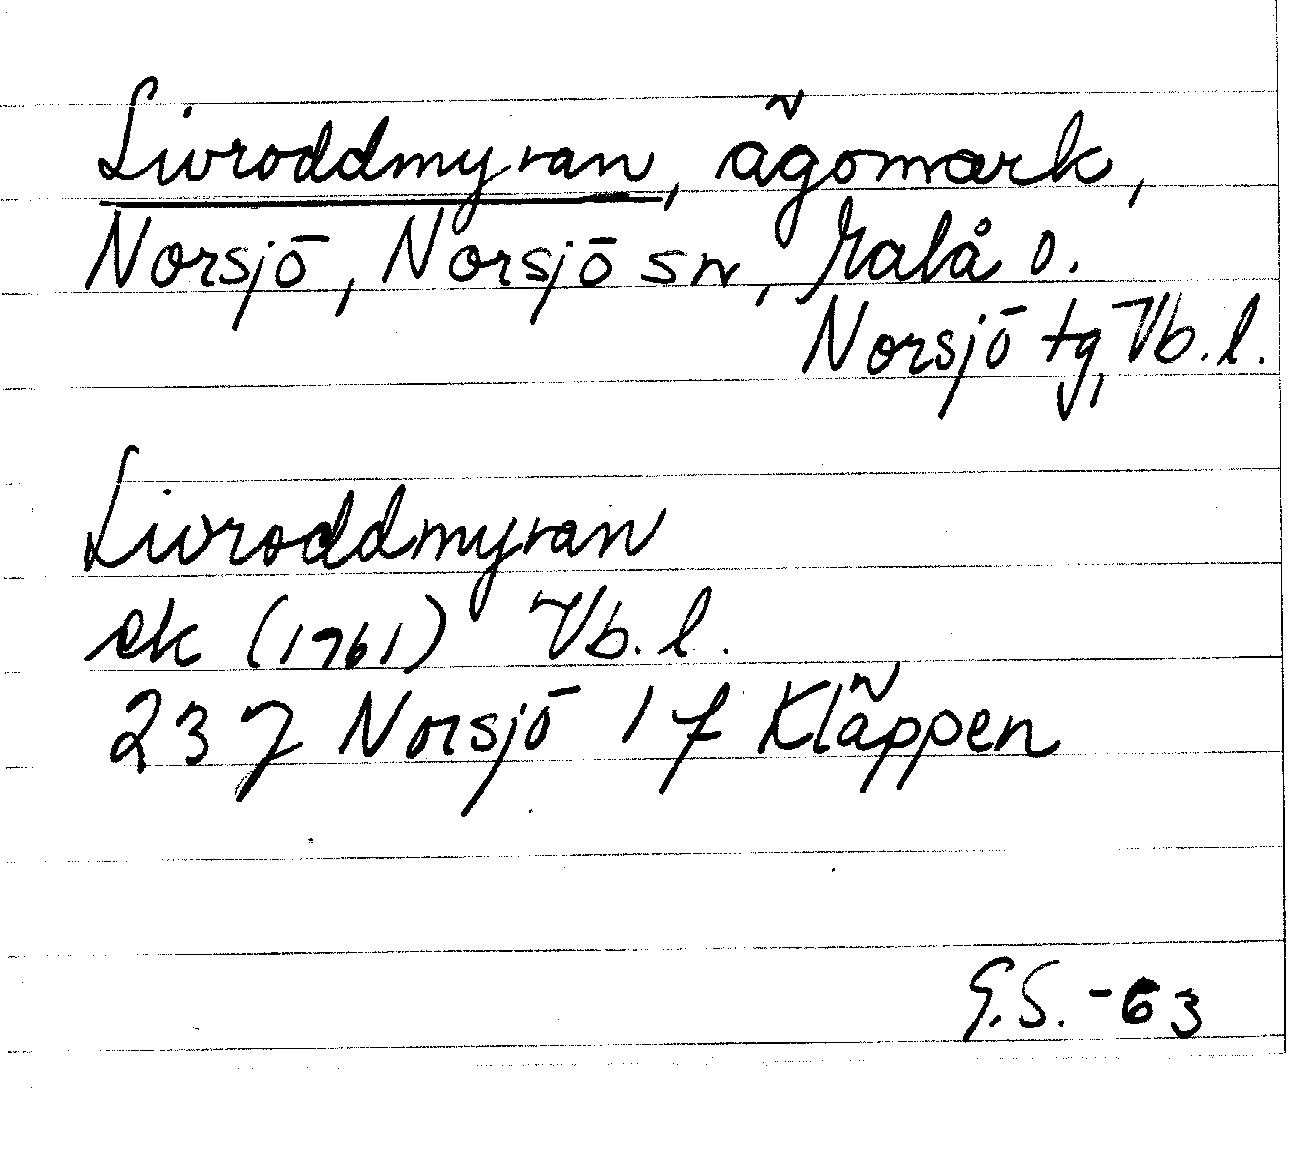 Livroddmyran, ägomark,
Norsjö, Norsjö sn, Malå o.
Norsjö tg, Vb. l.
Livroddmyran
ek (1961) Vb. l.
23 J Norsjö 1 f Kläppen
G.S. -63